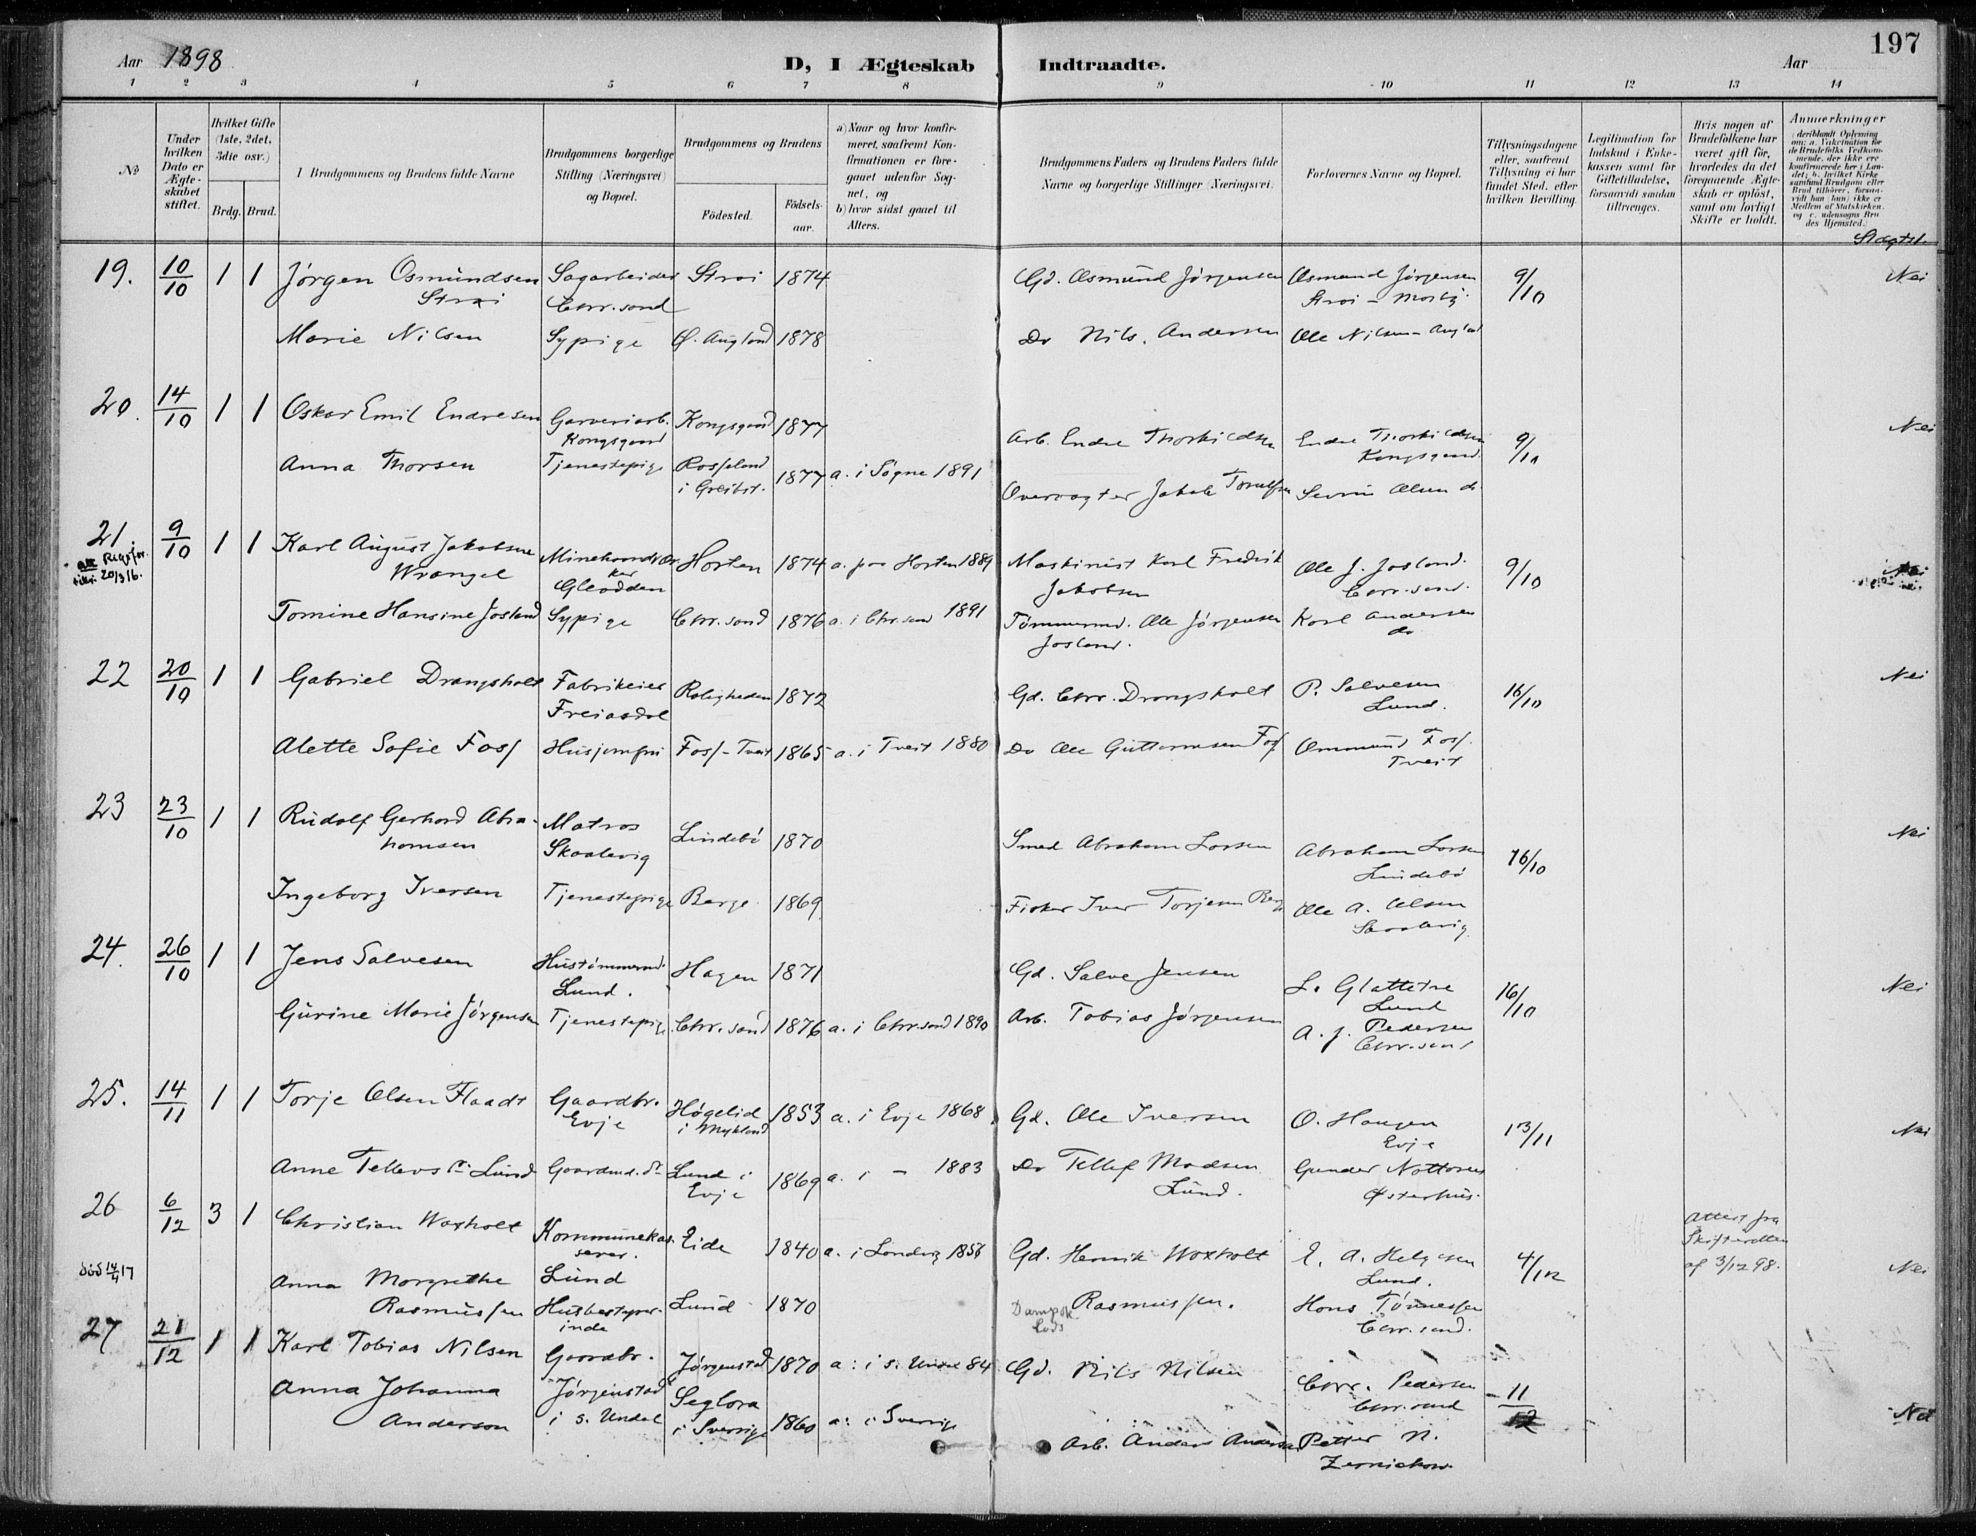 197
Aar 1898
D, I Ægteskab Indtraadte.
Aar
1 2 3 4 5 6 7 8 9 10 11 12 13 14
No
Under hvilken Dato er Ægteskabet stiftet.
Hvilket Gifte (1ste, 2det, 3die osv.)
Brdg. Brud.
Brudgommens og Brudens fulde Navne
Brudgommens borgerlige Stilling (Næringsvei) og Bopæl.
Brudgommens og Brudens
Födested. Födselsaar.
a) Naar og hvor konfirmeret, saafremt Konfirmationen er foregaaet udenfor Sognet, og
b) hvor sidst gaaet til Alters.
Brudgommens Faders og Brudens Faders fulde Navne og borgerlige Stillinger (Næringsvei).
Forlovernes Navne og Bopæl.
Tillysningsdagene eller, saafremt Tillysning ei har fundet Sted, efter hvilken Bevilling.
Legitimation for Indskud i Enkekassen samt for Giftetilladelse, forsaavidt saadan tiltrænges.
Hvis nogen af Brudefolkene har været gift før, hvorledes da det foregaaende Ægteskab er opløst, samt om lovligt Skifte er holdt.
Anmerkninger
Slægtsk.
19. 10/10 1 1 Jørgen Osmundsen Sagarbeider Stroi 1874 Gd. Osmund Jørgensen Osmund Jørgensen 9/10 Nei
Stroi Chr.sand Stroi - Mosby
Marie Nilsen Sypige Ø. Augland 1878 Do Nils Andersen Ole Nilsen Augland
20. 14/10 1 1 Oskar Emil Endresen Garveriarb. Kongsgaard 1877 Arb. Endre Thorkildsen Endre Thorkildsen 9/10 Nei
Kongsgaard Kongsgaard
Anna Thorsen Tjenestepige Rosseland 1877 a. i Søgne 1891 Overvagter Jakob Severin Olsen do
i Greibst.
21. 9/10 1 1 Karl August Jakobsen Minehaandtverker Horten 1874 a. paa Horten 1889 Maskinist Karl Fredrik Ole J. Josland 9/10 Nei
20/3 16. Wrangel Glodden Jakobsen Chr.sand
Tomine Hansine Josland Sypige Chr.sand 1876 a. i Chr.sand 1891 Tømmermd. Ole Jørgensen Karl Andersen
Josland. do
22 20/10 1 1 Gabriel Drangsholt Fabrikeier Roligheden 1872 Gd. Chr. Drangsholt P. Salvesen 16/10 Nei
Freiasdal Lund.
Alette Sofie Foss Husjomfru Foss - Tveit 1865 a. i Tveit 1880 Do Ole Guttormsen Foss Ommund Foss
Tveit
23 23/10 1 1 Rudolf Gerhard Abra- Matros Lindebø 1870 Smed Abraham Larsen Abraham Larsen 16/10 Nei
hamsen Skaalevig Lindebø
Ingeborg Iversen Tjenestepige Berge 1869 Fisker Iver Torjesen Berge Ole A. Olsen
Skaalevig
24. 26/10 1 1 Jens Salvesen Hustømmermd. Hagen 1871 Gd. Salve Jensen L. Glattetre 16/10 Nei
Lund. Lund
Gurine Marie Jørgensen Tjenestepige Chr.sand 1876 a. i Chr.sand 1890 Arb. Tobias Jørgensen A. J. Pedersen
Chr.sand
25. 14/11 1 1 Torje Olsen Flaadt Gaardbr. Høgelid 1853 a. i Evje 1868 Gd. Ole Iversen O. Haugen 13/11 Nei
Evje i Mykland Evje
Anne Tellevs D. Lund Gaardmd. Dt. Lund i 1869 a. i - 1883 Do Tellef Madsen Gunder
Evje Lund. Østerhus.
26 6/12 3 1 Christian Woxholt Kommunekas- Eide 1840 a. i Landvig 1856 Gd. Henrik Woxholt E. A. Helgesen 4/12 Attest fra Skifteretten af 3/12 98. Nei
serer. Lund.
død 14/4 17 Anna Margrethe Lund
Rasmussen Husbestyrer- Lund 1870 Dampsk. Lods Rasmussen. Hans Tønnessen
inde Chr.sand.
27 21/12 1 1 Karl Tobias Nilsen Gaardbr. Jørgenstad 1870 a: i s. Undal 84 Gd. Nils Nilsen Chr. Pedersen 11/12 Nei
Jørgenstad Chr.sand
Anna Johanna i s. Undal Seglora 1860 a: i Sverrige Arb. Anders Anderson Petter N.
Anderson i Sverrige Zernichow